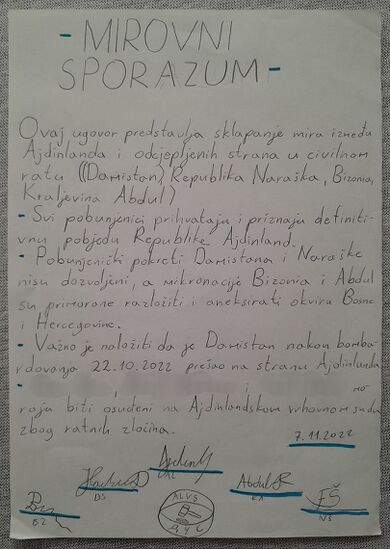 - MIROVNI
SPORAZUM -
Ovaj ugovor predstavlja sklapanje mira između
Ajdinlanda i odcjepljenih strana u civilnom
ratu ((Damistan) Republika Naraška, Bizonia,
Kraljevina Abdul)
- Svi pobunjenici prihvataju i priznaju definiti-
vnu pobjedu Republike Ajdinland.
- Pobunjenički pokreti Damistana i Naraške
nisu dozvoljeni, a mikronacije Bizonia i Abdul
su primorane razložiti i aneksirati okviru Bosne
i Hercegovine.
- Važno je naložiti da je Damistan nakon bomba-
rdovanja 22.10.2022 prešao na stranu Ajdinlanda
- i mo
raju biti osuđeni na Ajdinlandskom vrhovnom sudu
zbog ratnih zločina.
7.11.2022
Abdul R
BZ DS KA NŠ
ALVS